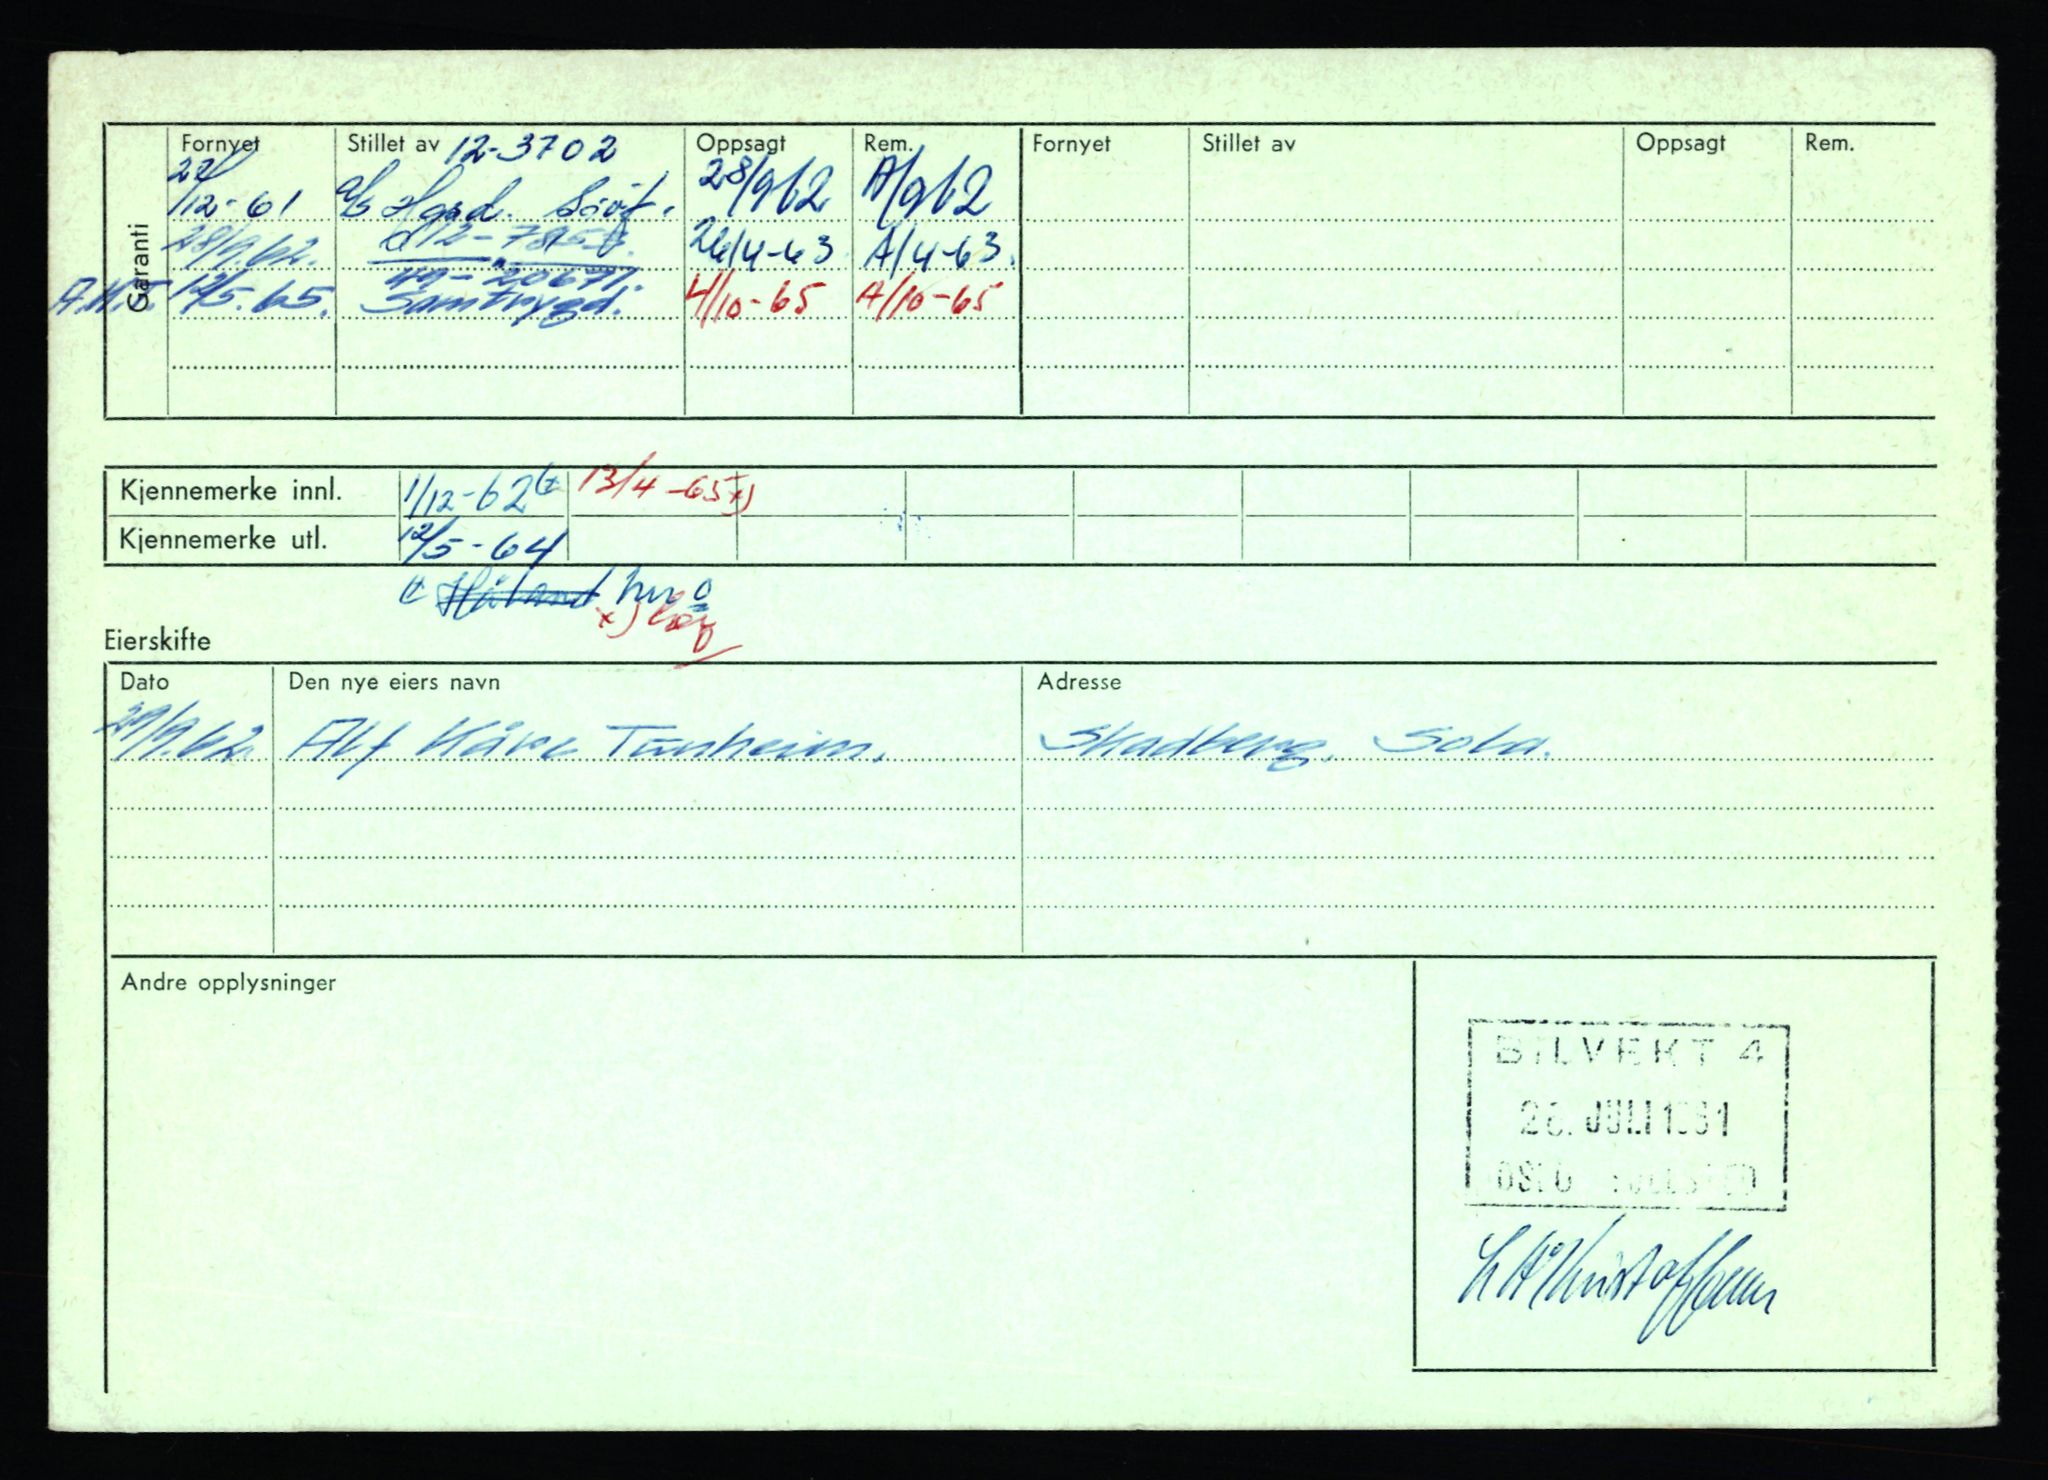 Garanti
Fornyet Stillet av 12-3702 Oppsagt Rem. Fornyet Stillet av Oppsagt Rem.
22/12-61 a/s 28/9 62 A/9 62
28/9.62. 26/4-63 A/4-63.
49-20671.
12/5.65. Samtrygd. 4/10-65 A/10-65
Kjennemerke innl. 1/12-62 13/4-65 x)
Kjennemerke utl. 12/5-64
Håland
x)
Eierskifte
Dato Den nye eiers navn Adresse
29/9.62. Alf Kåre Tunheim. Skadberg, Sola.
Andre opplysninger
BILVEKT 4
JULI 1961
OSLO